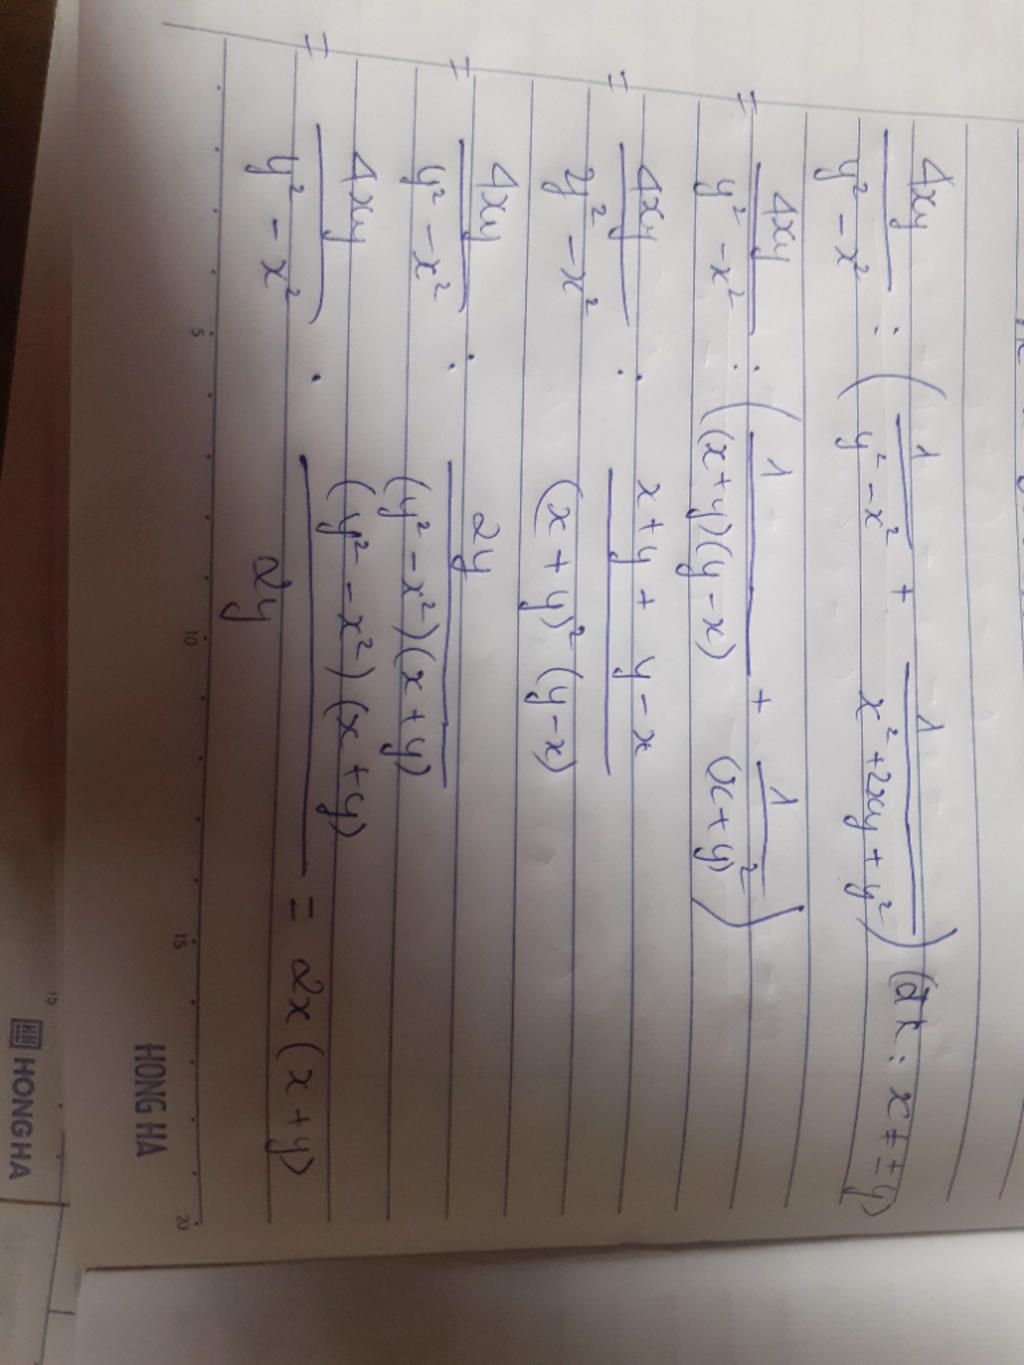 4xy/(y² - x²) : (1/(y² - x²) + 1/(x² + 2xy + y²)) (đk: x ≠ ±y)
= 4xy/(y² - x²) : (1/((x+y)(y-x)) + 1/(x+y)²)
= 4xy/(y² - x²) : (x+y + y-x)/((x+y)²(y-x))
= 4xy/(y² - x²) : 2y/((y² - x²)(x+y))
= 4xy/(y² - x²) . ((y² - x²)(x+y))/2y = 2x(x+y)
5 10 15 20
HONG HA
15
HONG HA